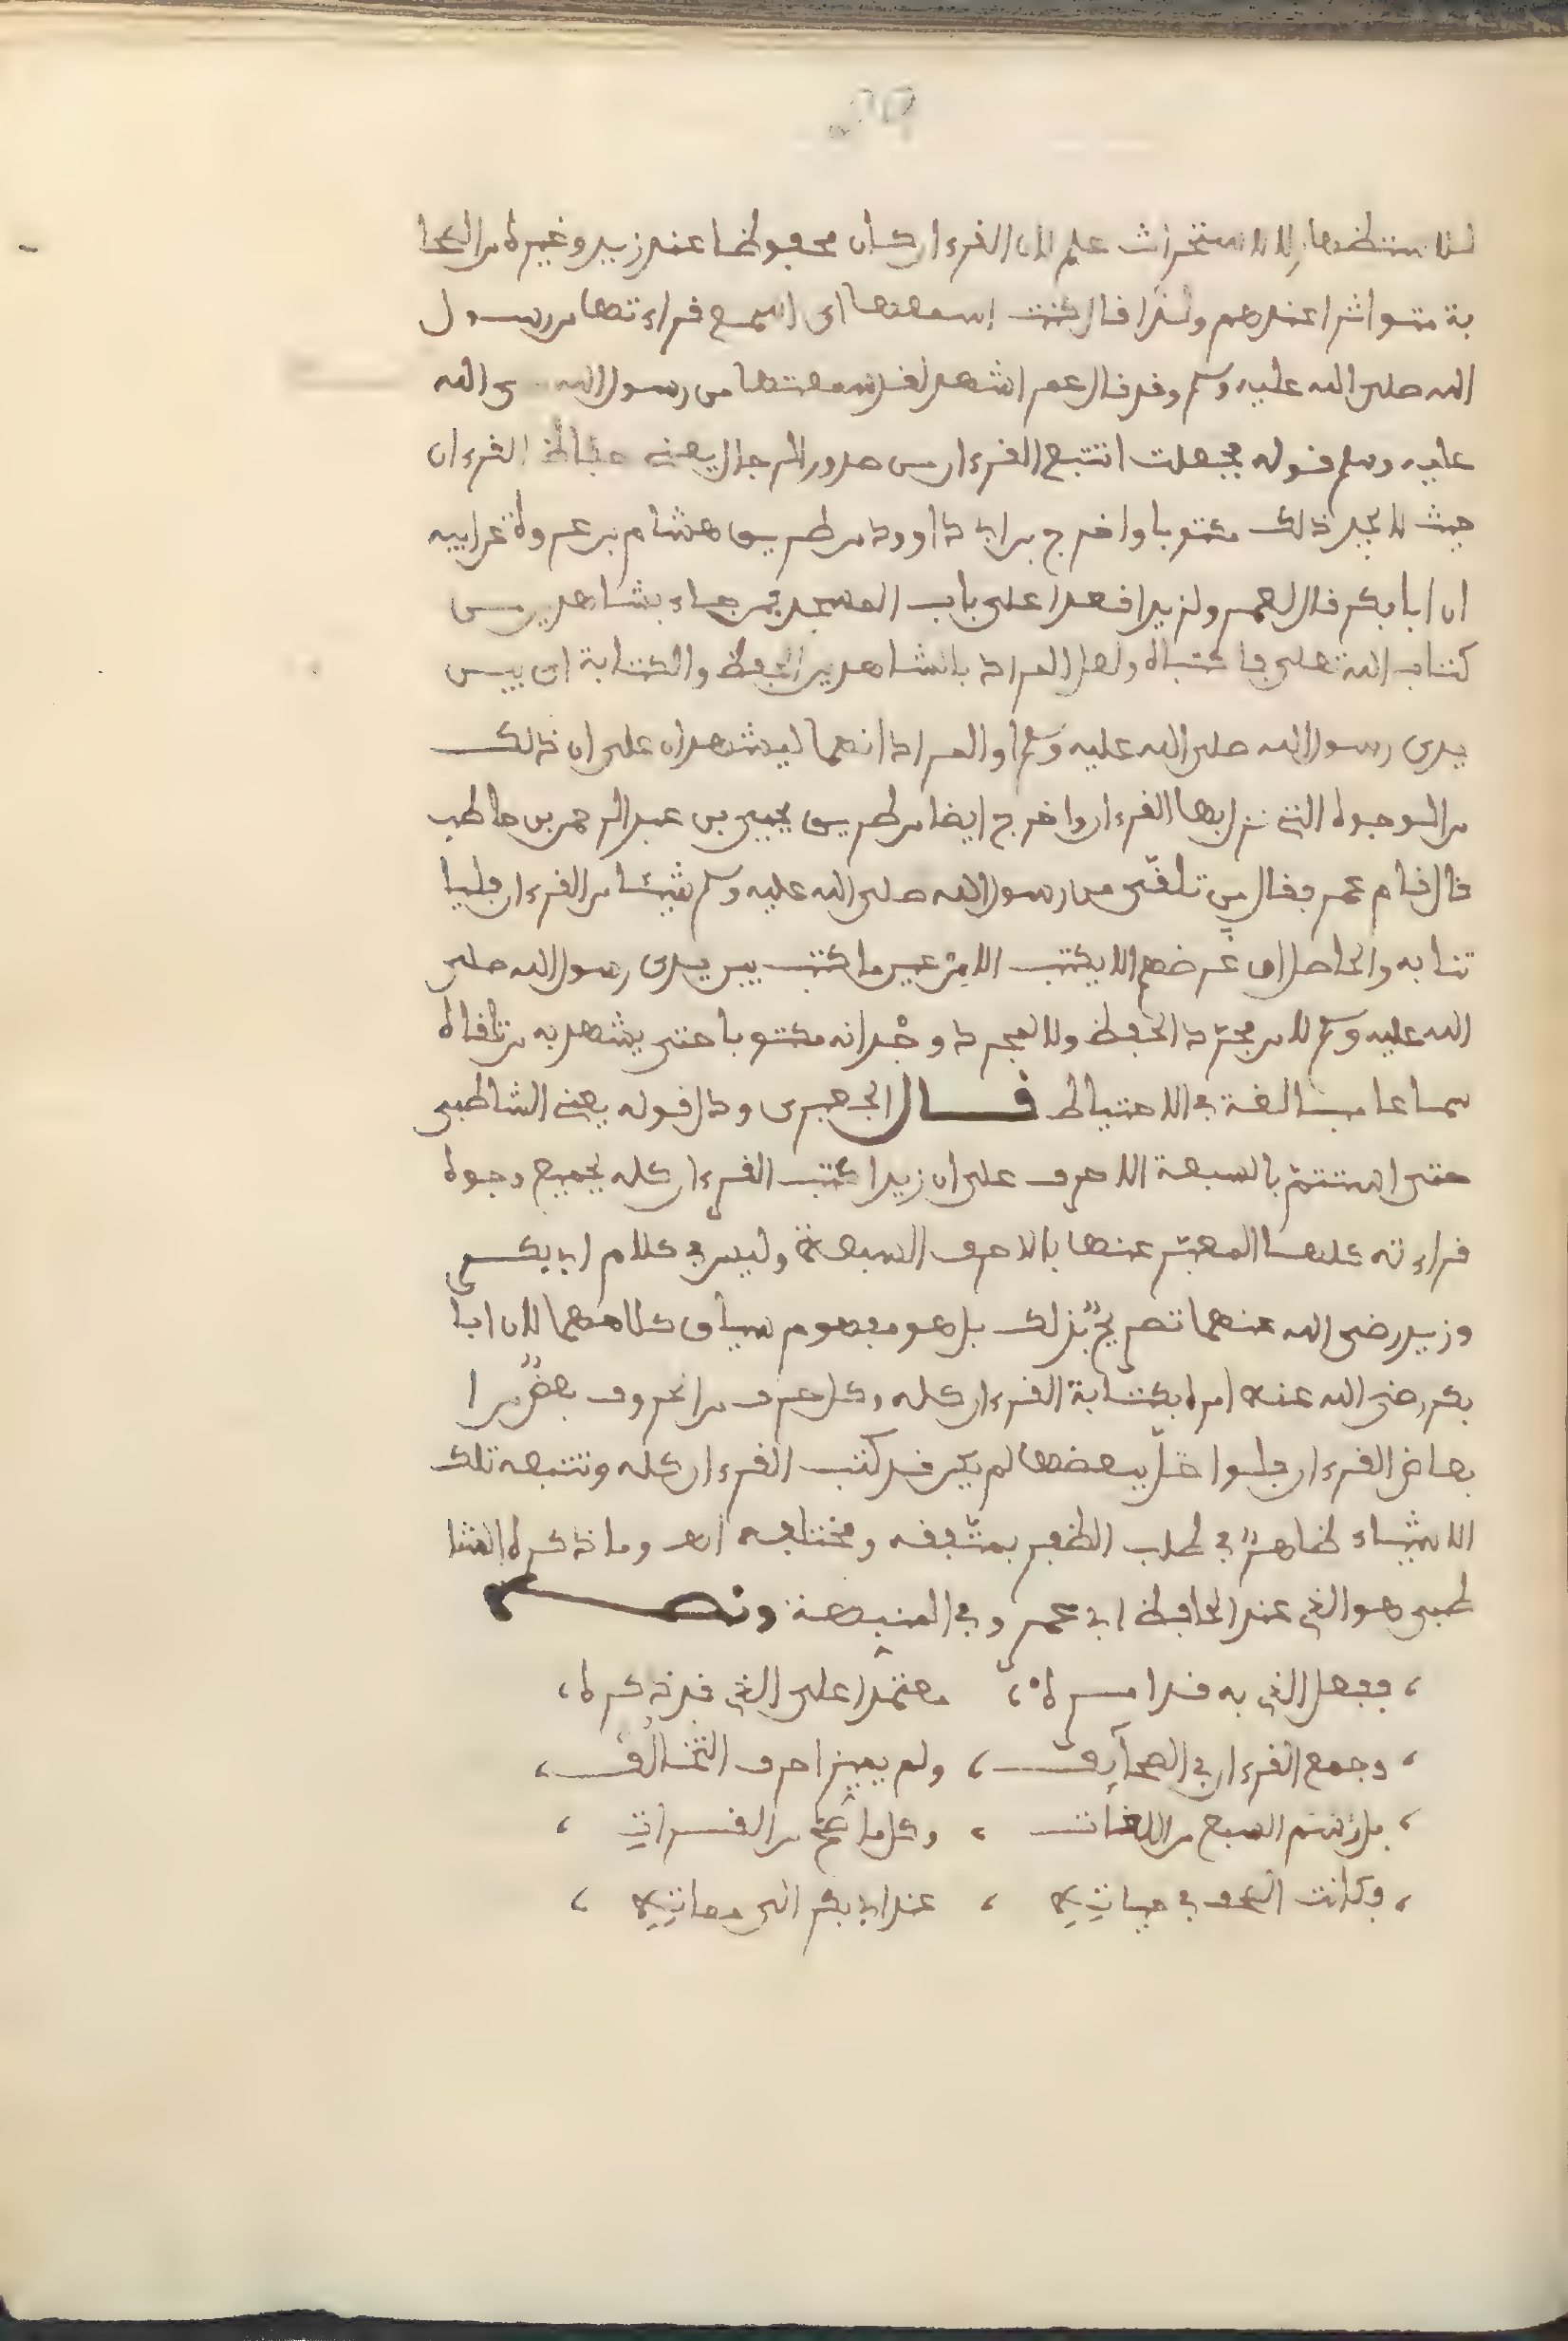 لنا ستظهار لا لاستحداث علم لان القرءان كان محفوظا عند زيد وغيره من الصحا
بة متواترا عندهم ولذا قال كنت اسمعها اى اسمع قراءتها من رسول
الله صلى الله عليه وسلم وقد قال عمر اشهد لقد سمعتها من رسول الله صلى الله
عليه وسلم قوله فجعلت اتتبع القرءان من صدور الرجال يعنى حفاظ القرءان
حيث لا يجد ذلك مكتوبا واخرج بن ابى داوود من طريق هشام بن عروة عن ابيه
ان ابا بكر قال لعمر ولزيد اقعدا على باب المسجد فمن جاء بشاهدين من
كتاب الله تعلى فاكتباه ولعل المراد بالشاهدين الحفظ والكتابة اى بين
يدى رسول الله صلى الله عليه وسلم او المراد انهما ليشهدان على ان ذلك
من الوجوه التى نزل بها القرءان واخرج ايضا من طريق يحيى بن عبد الرحمن بن حاطب
قال قام عمر فقال من تلقى من رسول الله صلى الله عليه وسلم شيئا من القرءان فليا
تنا به والحاصل ان غرضهم الا يكتب الا من عين ما كتب بين يدى رسول الله صلى
الله عليه وسلم لا من مجرد الحفظ ولا لمجرد وجدانه مكتوبا حتى يشهد به من تلقاه
سماعا مبالغة فى الاحتياط قال الجعبرى ودل قوله يعنى الشاطبى
حتى استتم بالسبعة الاحرف على ان زيدا كتب القرءان كله بجميع وجوه
قراءته كلها المعبر عنها بالاحرف السبعة وليس فى كلام ابى بكر
وزيد رضى الله عنهما تصريح بذلك بل هو مفهوم سياق كلامهما لان ابا
بكر رضى الله عنه امره بكتابة القرءان كله وكل حرف من الحروف بعض من ا
بعاض القرءان فلو اخل ببعضها لم يكن قد كتب القرءان كله وتتبعه تلك
الاشياء ظاهر فى طلب الظفر بمتفقه ومختلفه اهـ وما ذكره الشا
طبى هو الذى عند الحافظ ابى عمرو فى المنبهة ونصه
، ففعل الذى به قد امره ، معتمدا على الذى قد ذكره ،
، وجمع القرءان فى الصحائف ، ولم يميز احرف التخالف ،
، بل رسم السبع من اللغات ، وكل ما صح من القراتِ ،
، فكانت الصحف فى حياتِهِ ، عند ابى بكر الى مماتِهِ ،